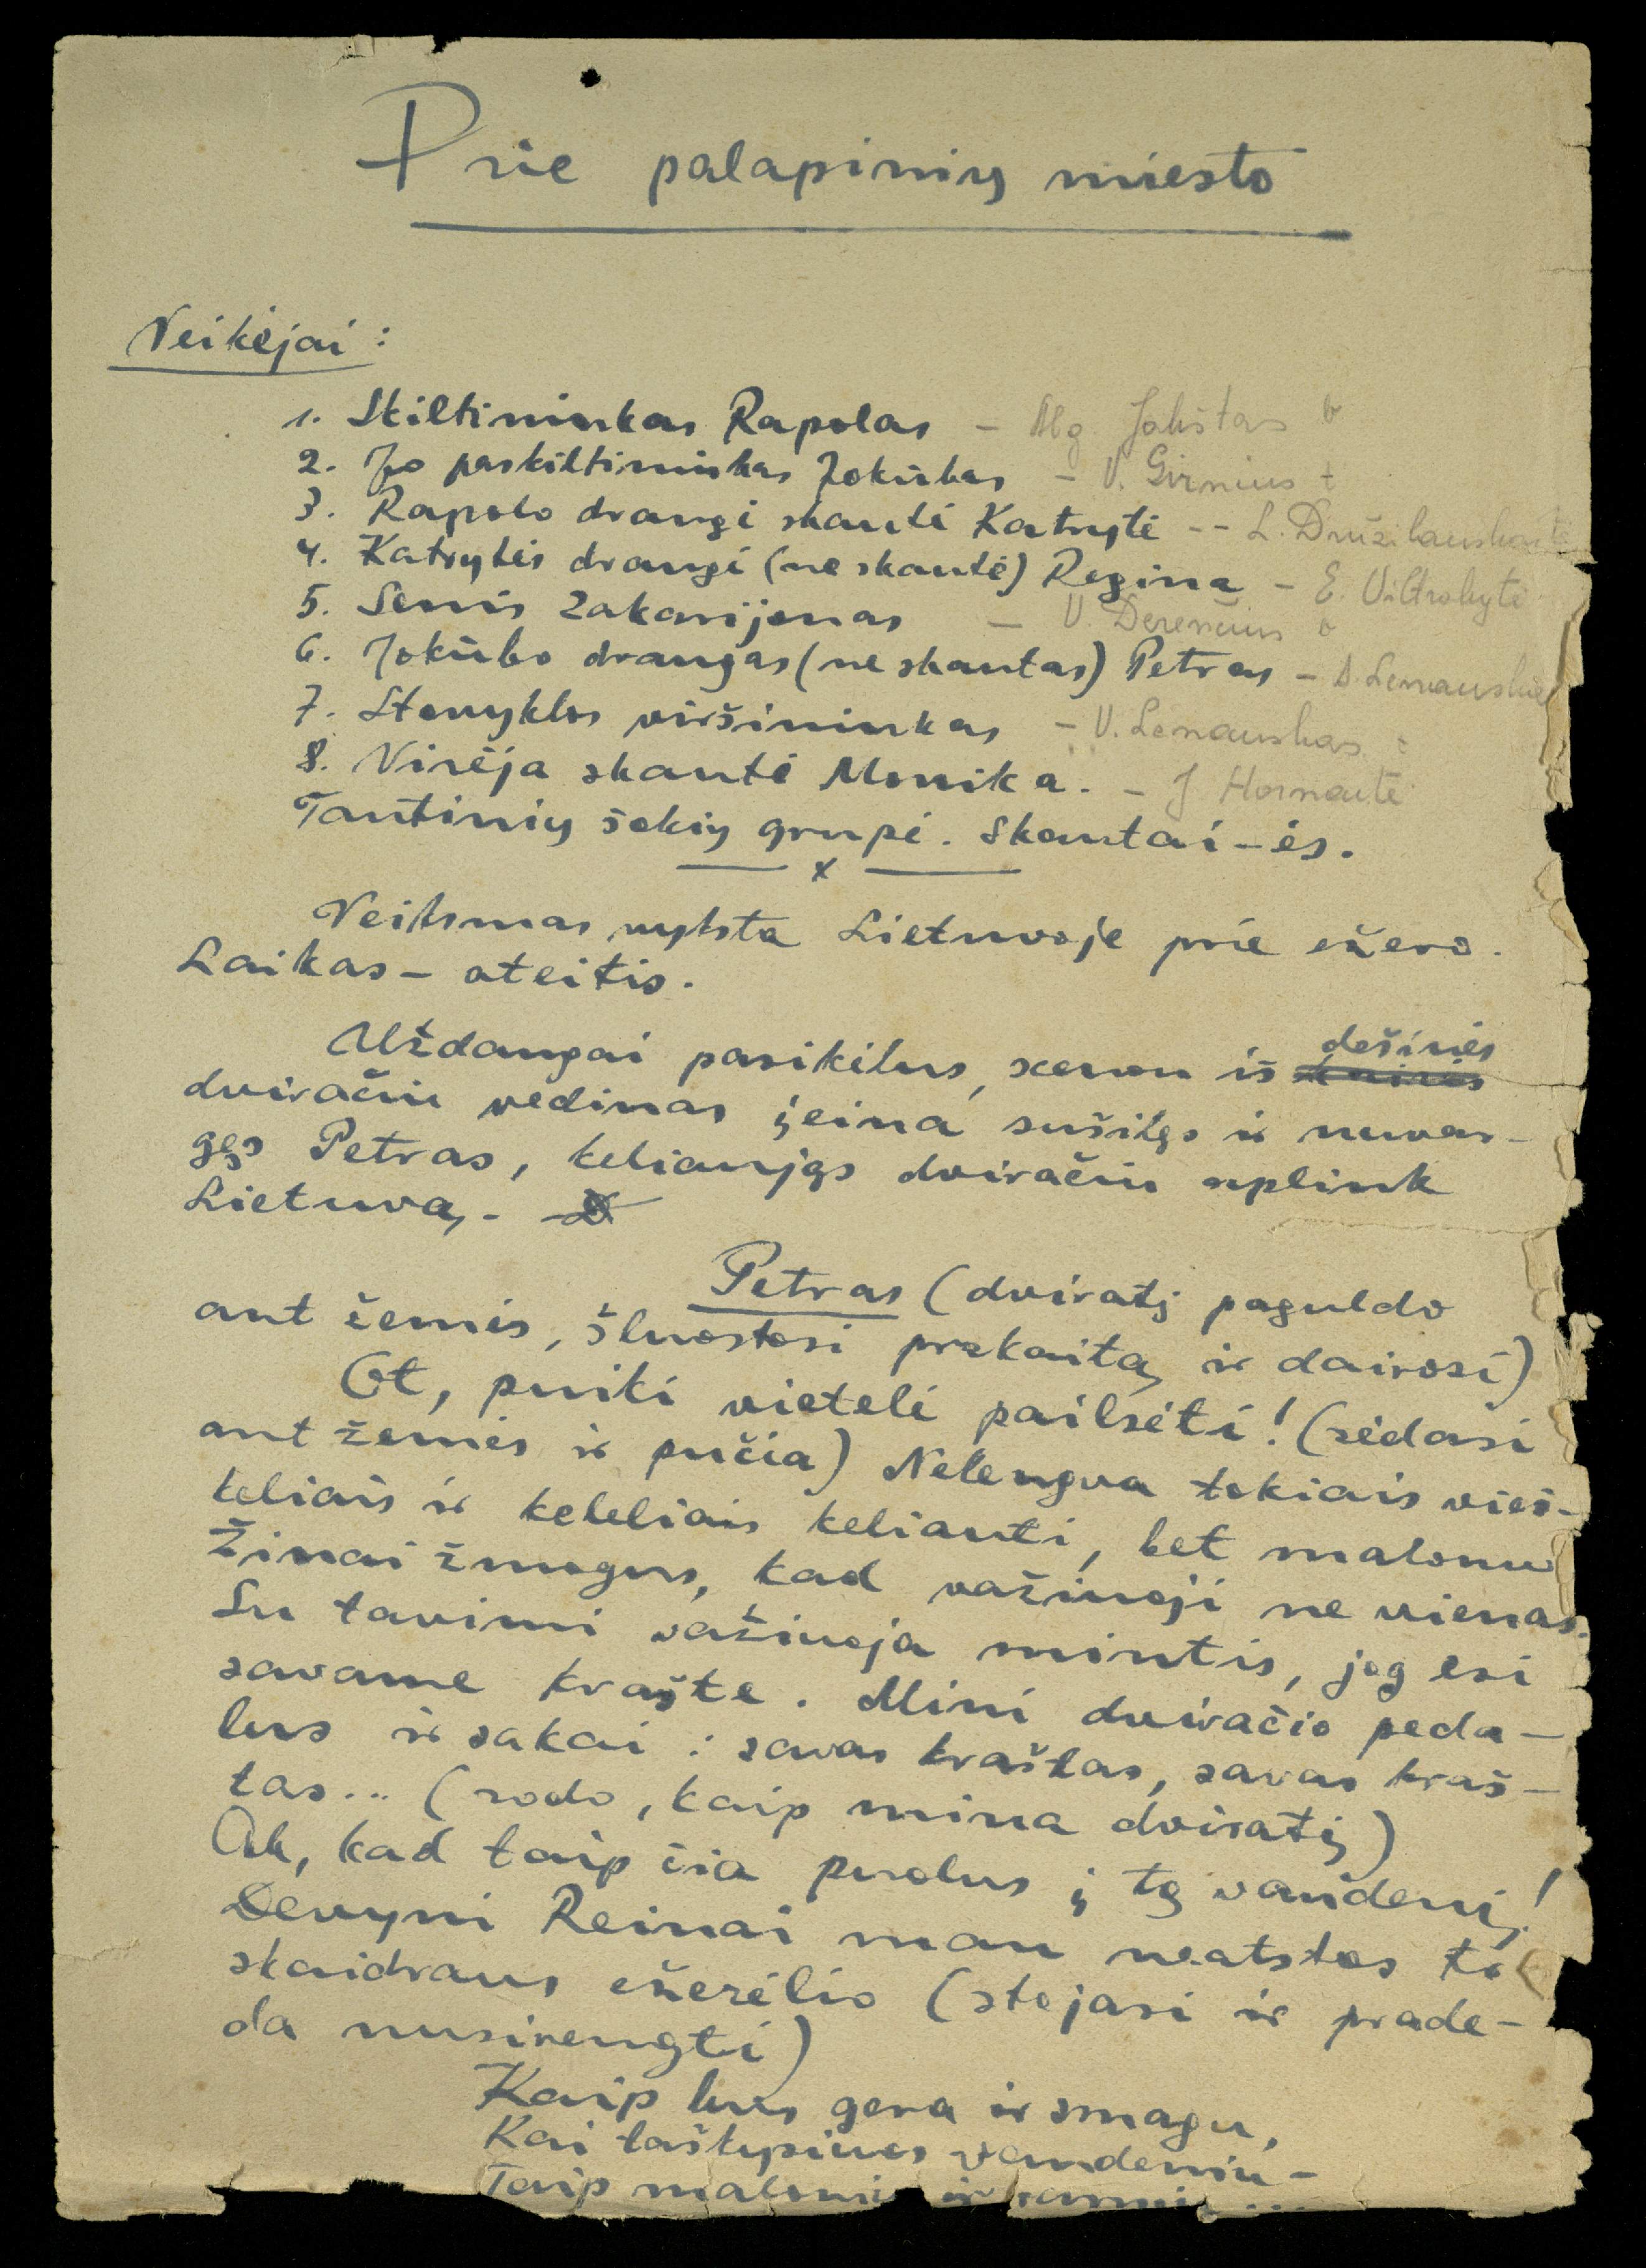 Prie palapinių miesto
Veikėjai:
1. Skiltininkas Rapolas – Alg. Jakštas
2. Jo paskiltininkas Jokūbas – V. Girnius
3. Rapolo draugė skautė Katrytė -- L. Družilauskaitė
4. Katrytės draugė (ne skautė) Regina – E. Viltrakytė
5. Senis Zakarijonas – V. Derenčius
6. Jokūbo draugas (ne skautas) Petras –
7. Stovyklos viršininkas – V. Lenauskas
8. Virėja skautė Monika. – J Hornaitė
Tautinių šokių grupė. Skautai-ės.
— x —
Veiksmas vyksta Lietuvoje prie ežero.
Laikas – ateitis.
dešinės
Uždangai pasikėlus, scenon iš kairės
dviračiu vedinas įeina sušilęs ir nuvar-
gęs Petras, keliaująs dviračiu aplink
Lietuvą. –
Petras (dviratį paguldo
ant žemės, šluostosi prakaitą ir dairosi)
Ot, puiki vietelė pailsėti! (sėdasi
ant žemės ir pučia) Nelengva tokiais vieš-
keliais ir keleliais keliauti, bet malonu
Žinai žmogus, kad važiuoji ne vienas.
Su tavimi važiuoja mintis, jog esi
savame krašte. Mini dviračio peda-
lus ir sakai: savas kraštas, savas kraš-
tas... (rodo, kaip mina dviratį)
Ak, kad taip čia puolus į tą vandenį!
Devyni Reinai man neatstos to
skaidraus ežerėlio (stojasi ir prade-
da nusirengti)
Kaip bus gera ir smagu,
Kai taškysiuos vandeniu –
Taip maloniu ir ...